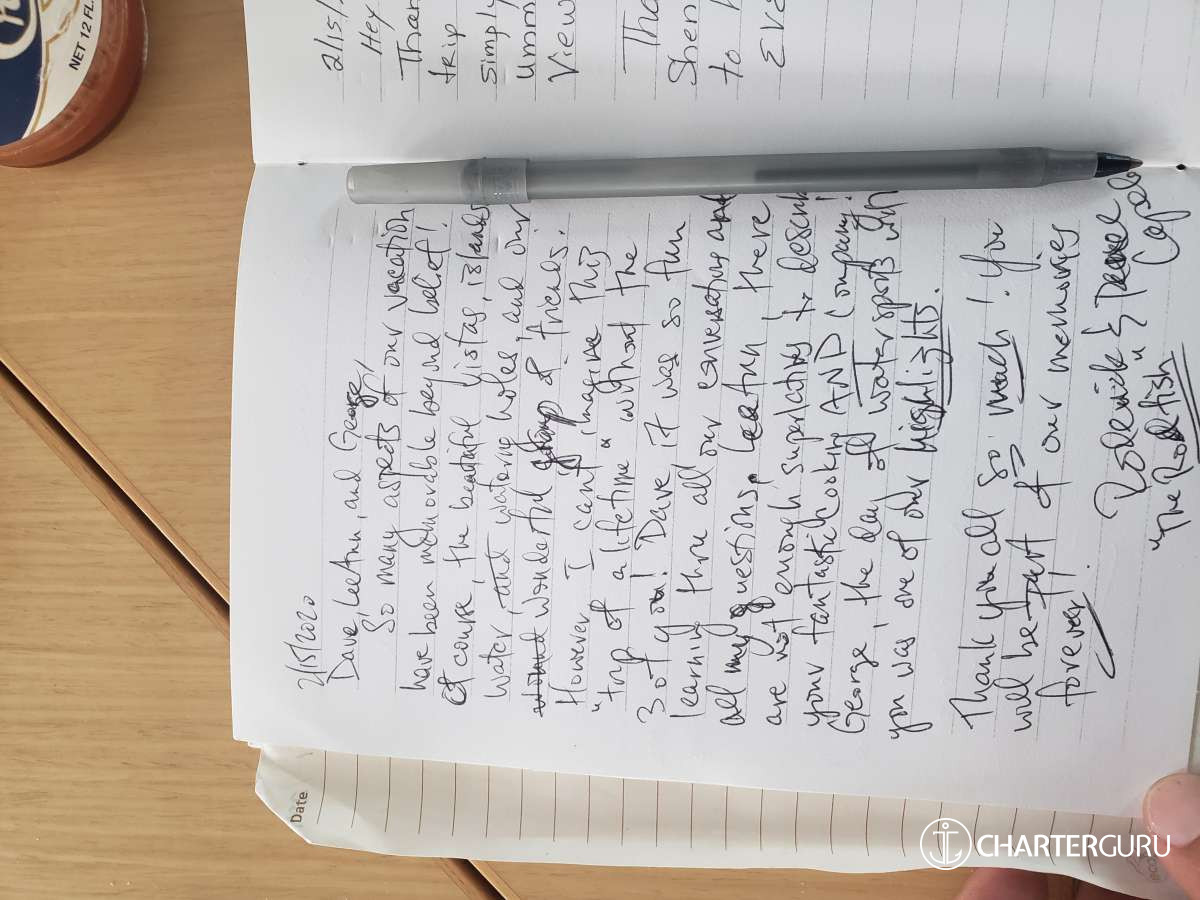 2/15/2020
Dave, LeeAnn, and George,
So many aspects of our vacation
have been memorable beyond belief!
Of course, the beautiful vistas, islands
water, and watering holes, and our
wonderful group of friends.
However I can't imagine this
"trip of a lifetime" without the
3 of you! Dave it was so fun
learning thru all our conversations and
all my questions. LeeAnn there
are not enough superlatives to describe
your fantastic cooking AND company!
George, the day of water sports with
you was one of our highlights.
Thank you all so much! You
will be part of our memories
forever!
Roderick & Renee
"The Rodfish"
2/15/
Hey
Than
trip
simply
umm
View
Tha
Shen
to
Eve
NET 12 FL.
Date
CHARTERGURU